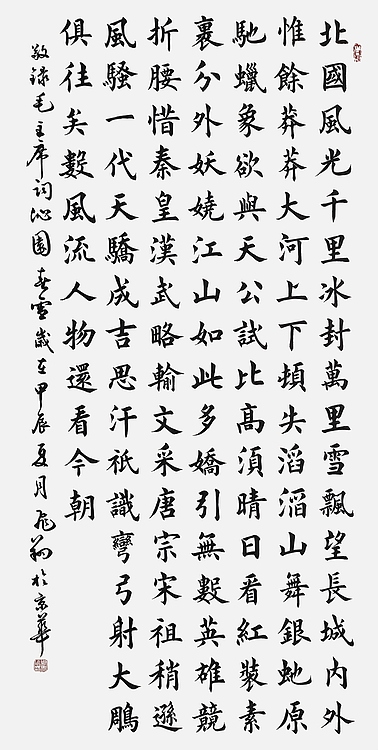 北國風光千里冰封萬里雪飄望長城內外
惟餘莽莽大河上下頓失滔滔山舞銀虵原
馳蠟象欲與天公試比高須晴日看紅裝素
裹分外妖嬈江山如此多嬌引無數英雄競
折腰惜秦皇漢武略輸文采唐宗宋祖稍遜
風騷一代天驕成吉思汗祇識彎弓射大鵰
俱往矣數風流人物還看今朝
敬録毛主席詞沁園春雪歲在甲辰夏月於京華